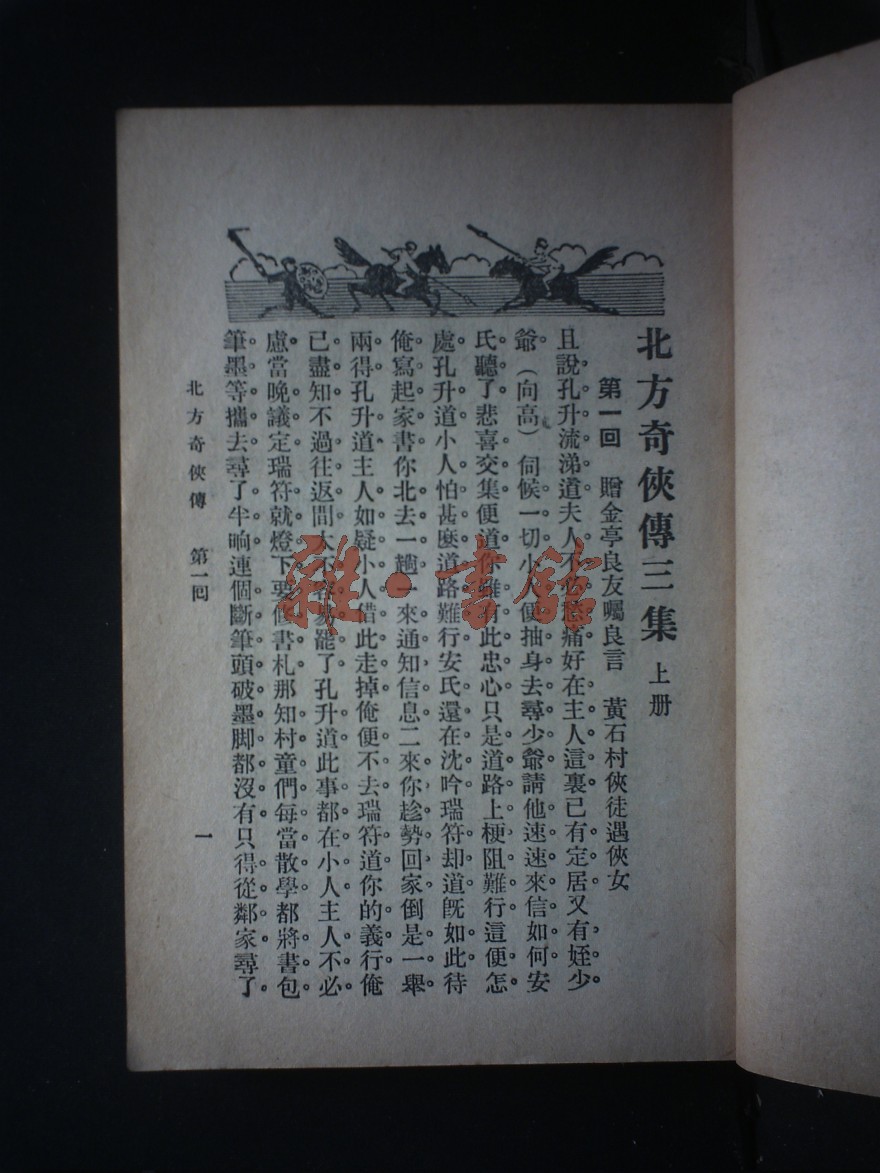 北方奇俠傳三集 上册
第一回 贈金亭良友囑良言 黃石村俠徒遇俠女
且說孔升流涕道夫人不必悲痛好在主人這裏已有定居又有姪少
爺（向高）伺候一切小人便抽身去尋少爺請他速速來信如何安
氏聽了悲喜交集便道你雖有此忠心只是道路上梗阻難行這便怎
處孔升道小人怕甚麼道路難行安氏還在沈吟瑞符却道旣如此待
俺寫起家書你北去一趟一來通知信息二來你趁勢回家倒是一舉
兩得孔升道主人如疑小人借此走掉俺便不去瑞符道你的義行俺
已盡知不過往返間大不容易罷了孔升道此事都在小人主人不必
慮當晚議定瑞符就燈下要修書札那知村童們每當散學都將書包
筆墨等攜去尋了半晌連個斷筆頭破墨脚都沒有只得從鄰家尋了
北方奇俠傳 第一回
一
雜·書館